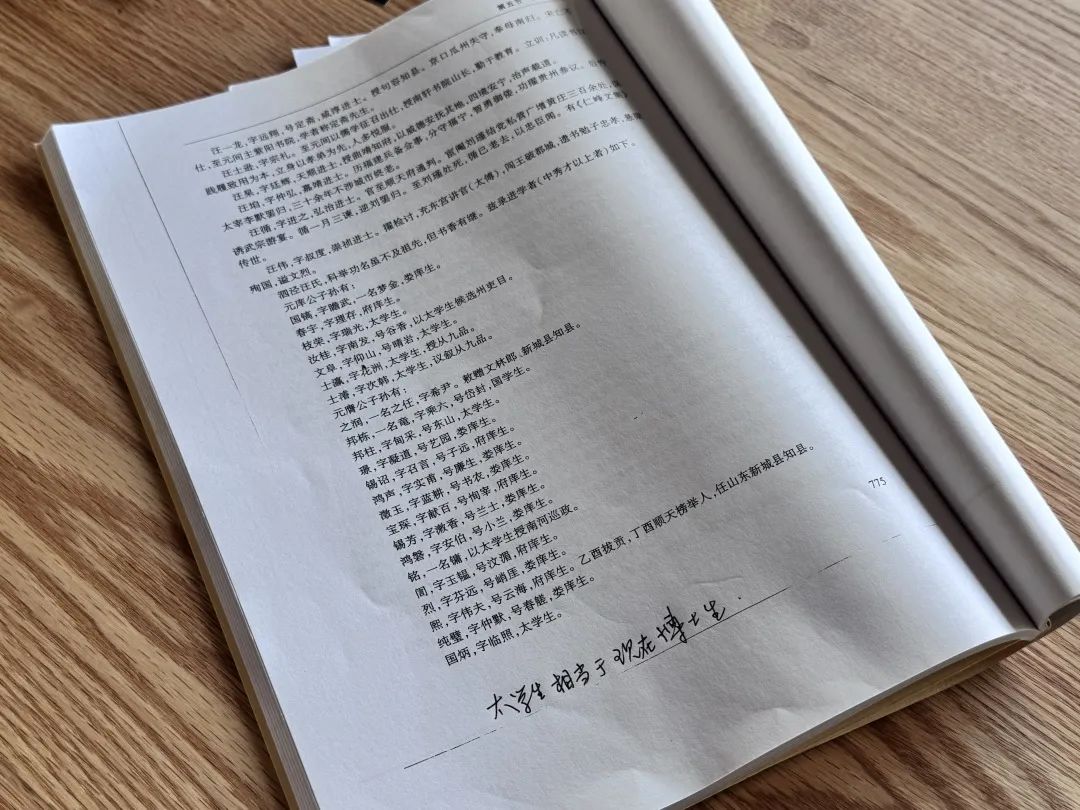 第五节
汪一龙,字远翔,号定斋,咸淳进士。授句容知县。京口瓜州失守,奉母南归。宋亡
仕,至元间主紫阳书院,学者称定斋先生。
汪士逊,字宗礼。至元间以儒学征召出仕,授南轩书院山长,勤于教育。立训:凡读书
践履致用为本,立身以孝弟为先,人多悦服。
汪杲,字廷辉,天顺进士,授曲靖知府,以威德安抚其地,四境安宁,治声载道。
汪垍,字仲弘,嘉靖进士。历福建兵备佥事,分守福宁,智勇御倭,功擢贵州参议。后忤
太宰李默罢归,三十余年不涉城市终老。
汪循,字进之,弘治进士。官至顺天府通判。宦阉刘瑾结党私营广增黄庄三百余处,
诱武宗游宴。循一月三谏,逆刘罢归。至刘瑾处死,循已老去,以忠臣闻。有《仁峰文集》
传世。
汪伟,字叔度,崇祯进士。擢检讨,充东宫讲官(太傅),闯王破都城,遗书勉子忠孝,悬
殉国,谥文烈。
泗泾汪氏,科举功名虽不及祖先,但书香有继。兹录进学者(中秀才以上者)如下。
元庠公子孙有:
国镐,字瞻武,一名梦金,娄庠生。
春宇,字理存,府庠生。
枝荣,字瑞光,太学生。
汝桂,字南发,号谷香,以太学生候选州吏目。
文阜,字仰山,号晴岩,太学生。
士瀛,字花洲,太学生,授从九品。
士潘,字次韩,太学生,议叙从九品。
元膺公子孙有:
之润,一名之任,字希尹。敕赠文林郎、新城县知县。
邦栋,一名竜,字乘六,号岱封,国学生。
邦柱,字甸采,号东山,太学生。
璟,字凝道,号艺园,娄庠生。
锡诏,字召言,号子远,府庠生。
鸿声,字实甫,号廉生,娄庠生。
澂玉,字蓝耕,号书衣,娄庠生。
宝琛,字献百,号恂宰,府庠生。
锡芳,字漱香,号兰土,娄庠生。
鸿磐,字安伯,号小兰,娄庠生。
铭,一名镛,以太学生授南河巡政。
訚,字玉韫,号汶湄,府庠生。
烈,字芬远,号峭厓,娄庠生。
熙,字伟夫,号云海,府庠生。乙酉拔贡,丁酉顺天榜举人,任山东新城县知县。
纯璧,字仲默,号春艖,娄庠生。
国炳,字临照,太学生。
775
太学生相当于现在博士生.